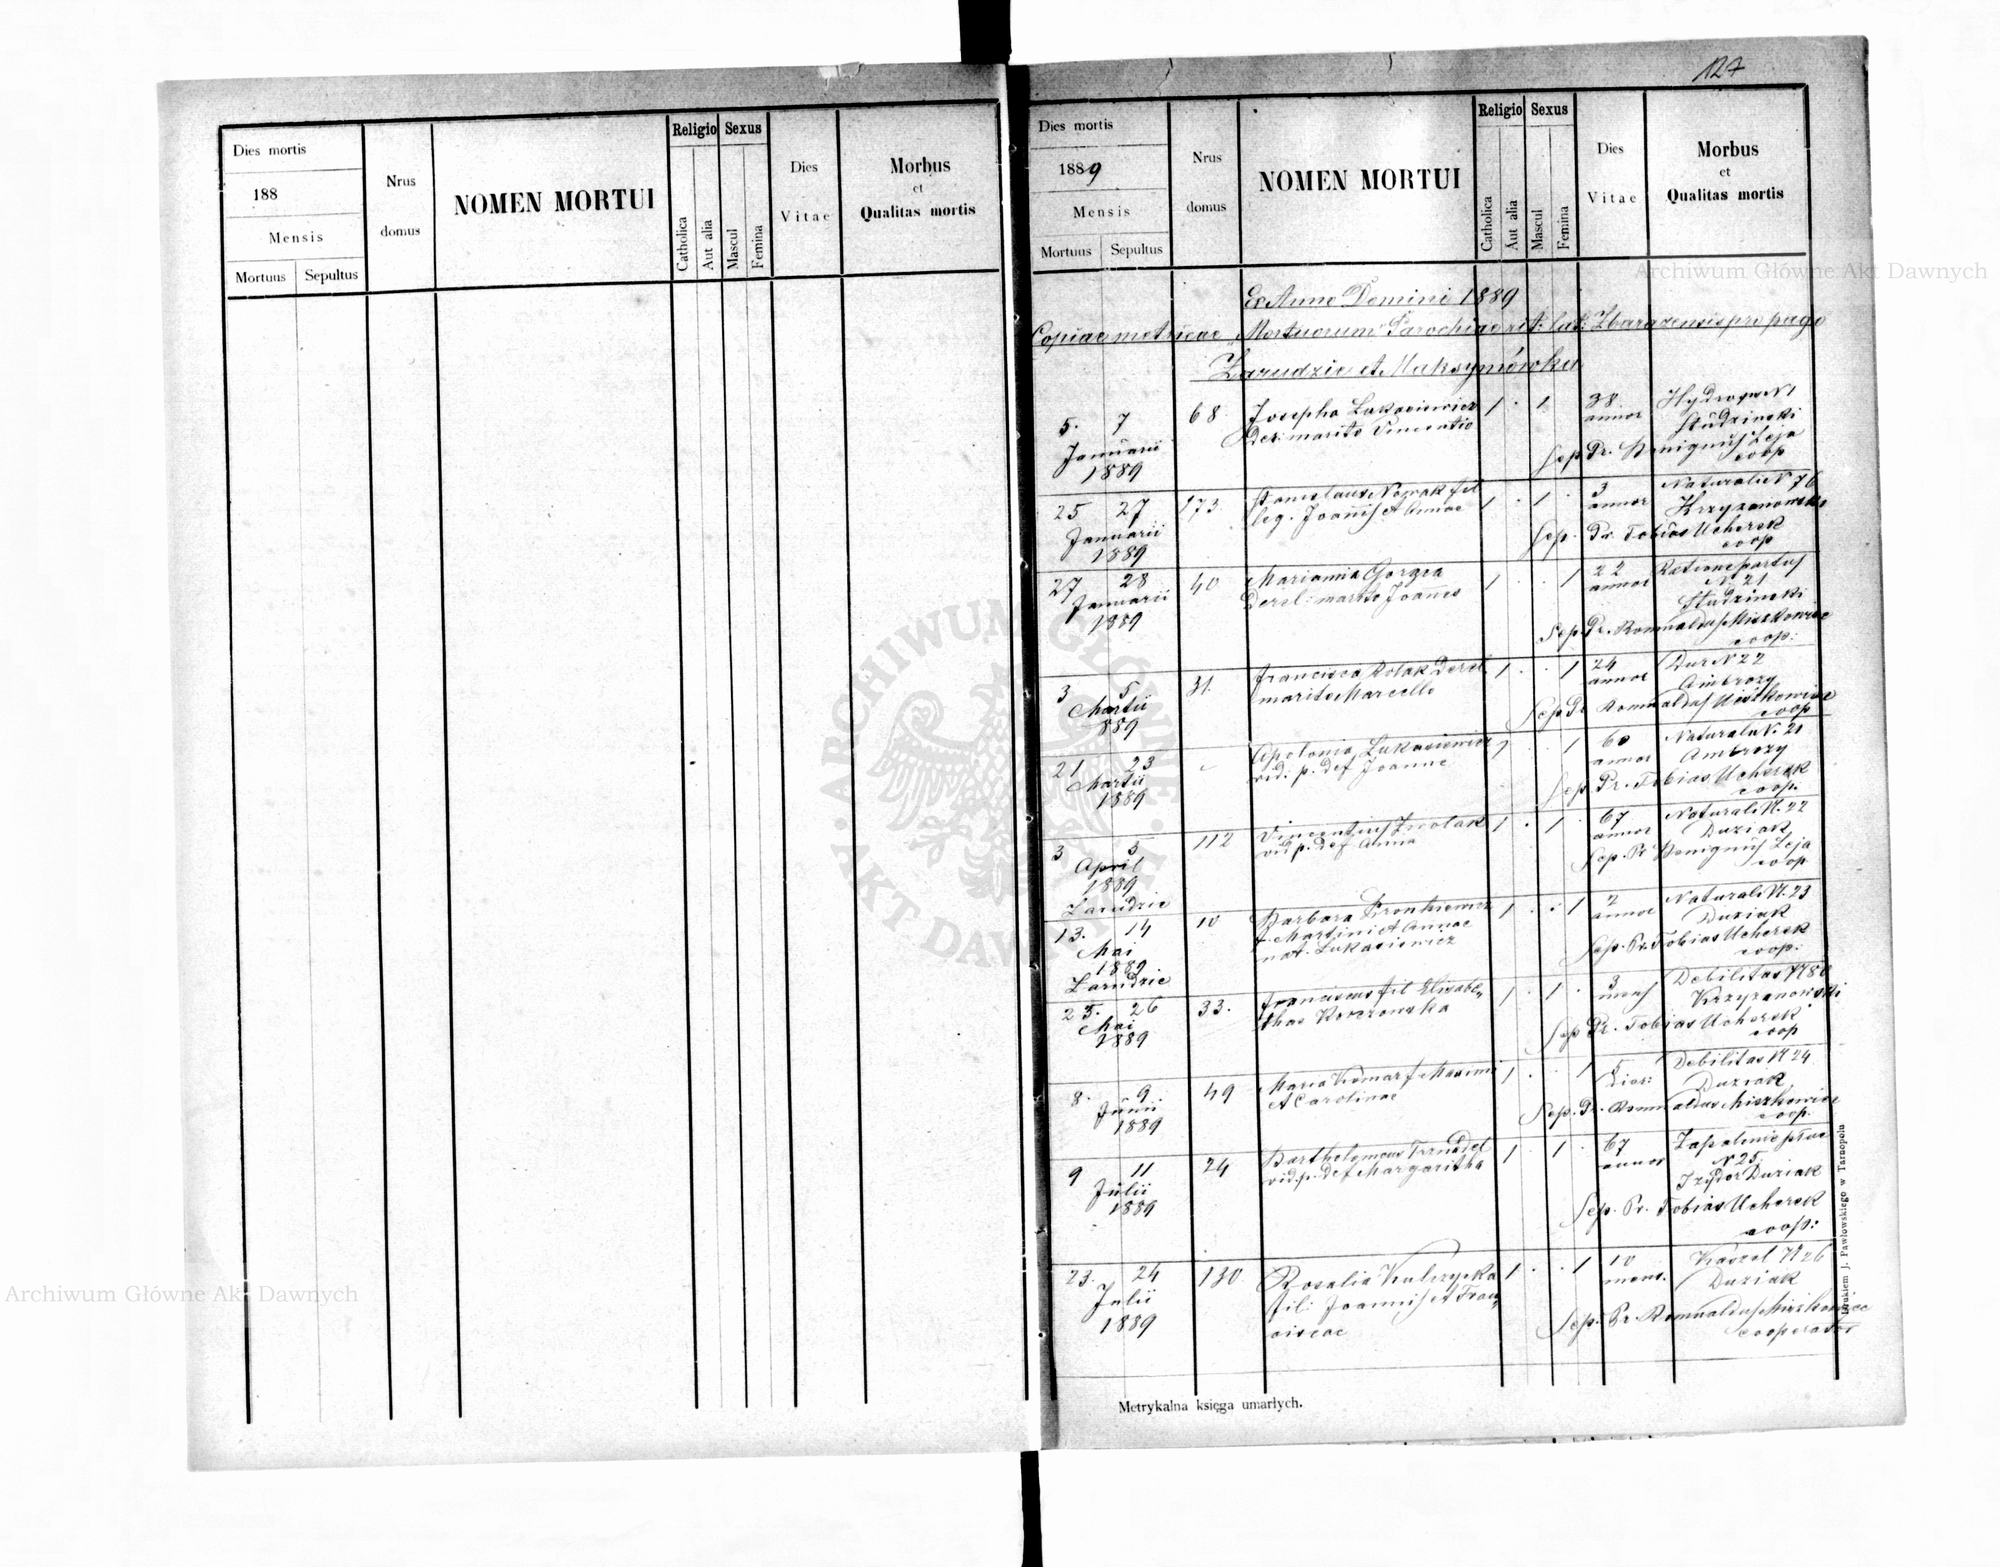 127
Dies mortis
188
Mensis
Mortuus Sepultus
Nrus domus
NOMEN MORTUI
Religio
Catholica
Aut alia
Sexus
Mascul
Femina
Dies Vitae
Morbus et Qualitas mortis
Dies mortis
1889
Mensis
Mortuus Sepultus
Nrus domus
NOMEN MORTUI
Religio
Catholica
Aut alia
Sexus
Mascul
Femina
Dies Vitae
Morbus et Qualitas mortis
Anno Domini 1889
Copiae metricae "Mortuorum" Parochiae rit: lat: Zbarazensis pro pago
Zarudzie et Maksymówka
5. 7 68 Josepha Lukasiewicz 1 . 1 38 annor
Januarii marito Vincentio Studzinski
1889 Sep. Pr. Benignus Leja coop
25 27 173 Stanislaus Nowak fil 1 . 1 . 3 annor Natural N 76
Januarii leg. Joannis et Annae Krzyzanowski
1889 Sep. Pr. Tobias Ucherek coop
27 28 40 Marianna Gorgea 1 . . 1 22 annor Ratione partus
Januarii Derel: marito Joannes N. 21
1889 Studzinski
Sep. Pr. Romualdus Miszkowicz coop:
3 5 31. Francisca Polak Derel. 1 . . 1 24 annor N 22
Martii marito Marcello Ambrozy
889 Sep Pr Romualdus Miszkowicz coop
21 23 Apolonia Lukasiewicz 1 . . 1 60 annor Natural N. 21
Martii vid. p. def Joanne Ambrozy
1889 Sep Pr. Tobias Ucherek coop.
3 5 112 Vincentius 1 . 1 . 67 annor Natural N. 22
April vid p. def Anna Duziak
1889 Sep. Pr Benignus Leja coop
Zarudzie
13. 14 10 Barbara 1 . . 1 2 annor Natural N. 23
Mai f. Martini et Annae Duziak
1889 nat. Lukasiewicz Sep. Pr. Tobias Ucherek coop.
Zarudzie
25. 26 33. Franciscus fil Elisabe„ 1 . 1 . 3 mens Debilitas
Mai thae Korzowska Krzyzanowski
1889 Sep Pr. Tobias Ucherek coop
8. 9 49 Maria Komar f Maximi 1 . . 1 5 dier: Debilitas N 24
Junii et Carolinae Duziak
1889 Sep. Pr. Romualdus Miszkowicz coop.
9 11 24 Bartholomeus 1 . 1 . 67 annor Zapalenie płuc
Julii vid. p. def Margaritha N 25
1889 Izydor Duziak
Sep. Pr. Tobias Ucherek coop:
23. 24 130 Rosalia Kulczycka 1 . . 1 10 mens. Kaszel N 26
Julii fil: Joannis et Fran„ Duziak
1889 ciscae Sep. Pr. Romualdus Miszkowicz cooperator
Metrykalna księga umarłych.
Drukiem J. Pawłowskiego w Tarnopolu
ARCHIWUM GŁÓWNE AKT DAWNYCH
Archiwum Główne Akt Dawnych
Archiwum Główne Akt Dawnych